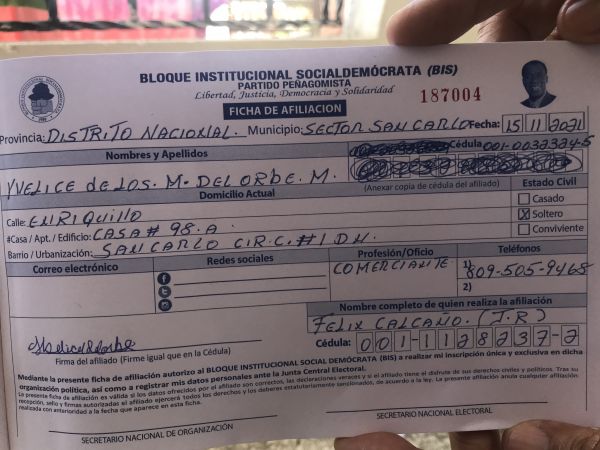 BLOQUE INSTITUCIONAL SOCIALDEMÓCRATA (BIS)
PARTIDO PEÑAGOMISTA
Libertad, Justicia, Democracia y Solidaridad
187004
FICHA DE AFILIACION
Provincia: DISTRITO NACIONAL. Municipio: SECTOR SAN CARLO Fecha: 15 11 2021
Nombres y Apellidos Cédula 001-0032334-5
YVELICE de LOS. M. DEL ORBE. M. (Anexar copia de cédula del afiliado)
Domicilio Actual Estado Civil
Calle: ENRIQUILLO Casado
#Casa / Apt. / Edificio: CASA # 98. A. X Soltero
Barrio / Urbanización: SAN CARLO CIRC. #1 D.N. Conviviente
Correo electrónico Redes sociales Profesión/Oficio Teléfonos
COMERCIANTE 1) 809-505-9465
2)
Nombre completo de quien realiza la afiliación
FELIX CALCAÑO. (J.R)
Firma del afiliado (Firme igual que en la Cédula) Cédula: 001-1128237-2
Mediante la presente ficha de afiliación autorizo al BLOQUE INSTITUCIONAL SOCIAL DEMÓCRATA (BIS) a realizar mi inscripción única y exclusiva en dicha
organización política, así como a registrar mis datos personales ante la Junta Central Electoral.
La presente ficha de afiliación es válida si los datos ofrecidos por el afiliado son correctos, las declaraciones veraces y si el afiliado tiene el disfrute de sus derechos civiles y políticos. Tras su
recepción, sello y firmas autorizadas el afiliado ejercerá todos los derechos y los deberes estatutariamente sancionados, de acuerdo a la ley. La presente afiliación anula cualquier afiliación
realizada con anterioridad a la fecha que aparece en esta ficha.
SECRETARIO NACIONAL DE ORGANIZACIÓN SECRETARIO NACIONAL ELECTORAL